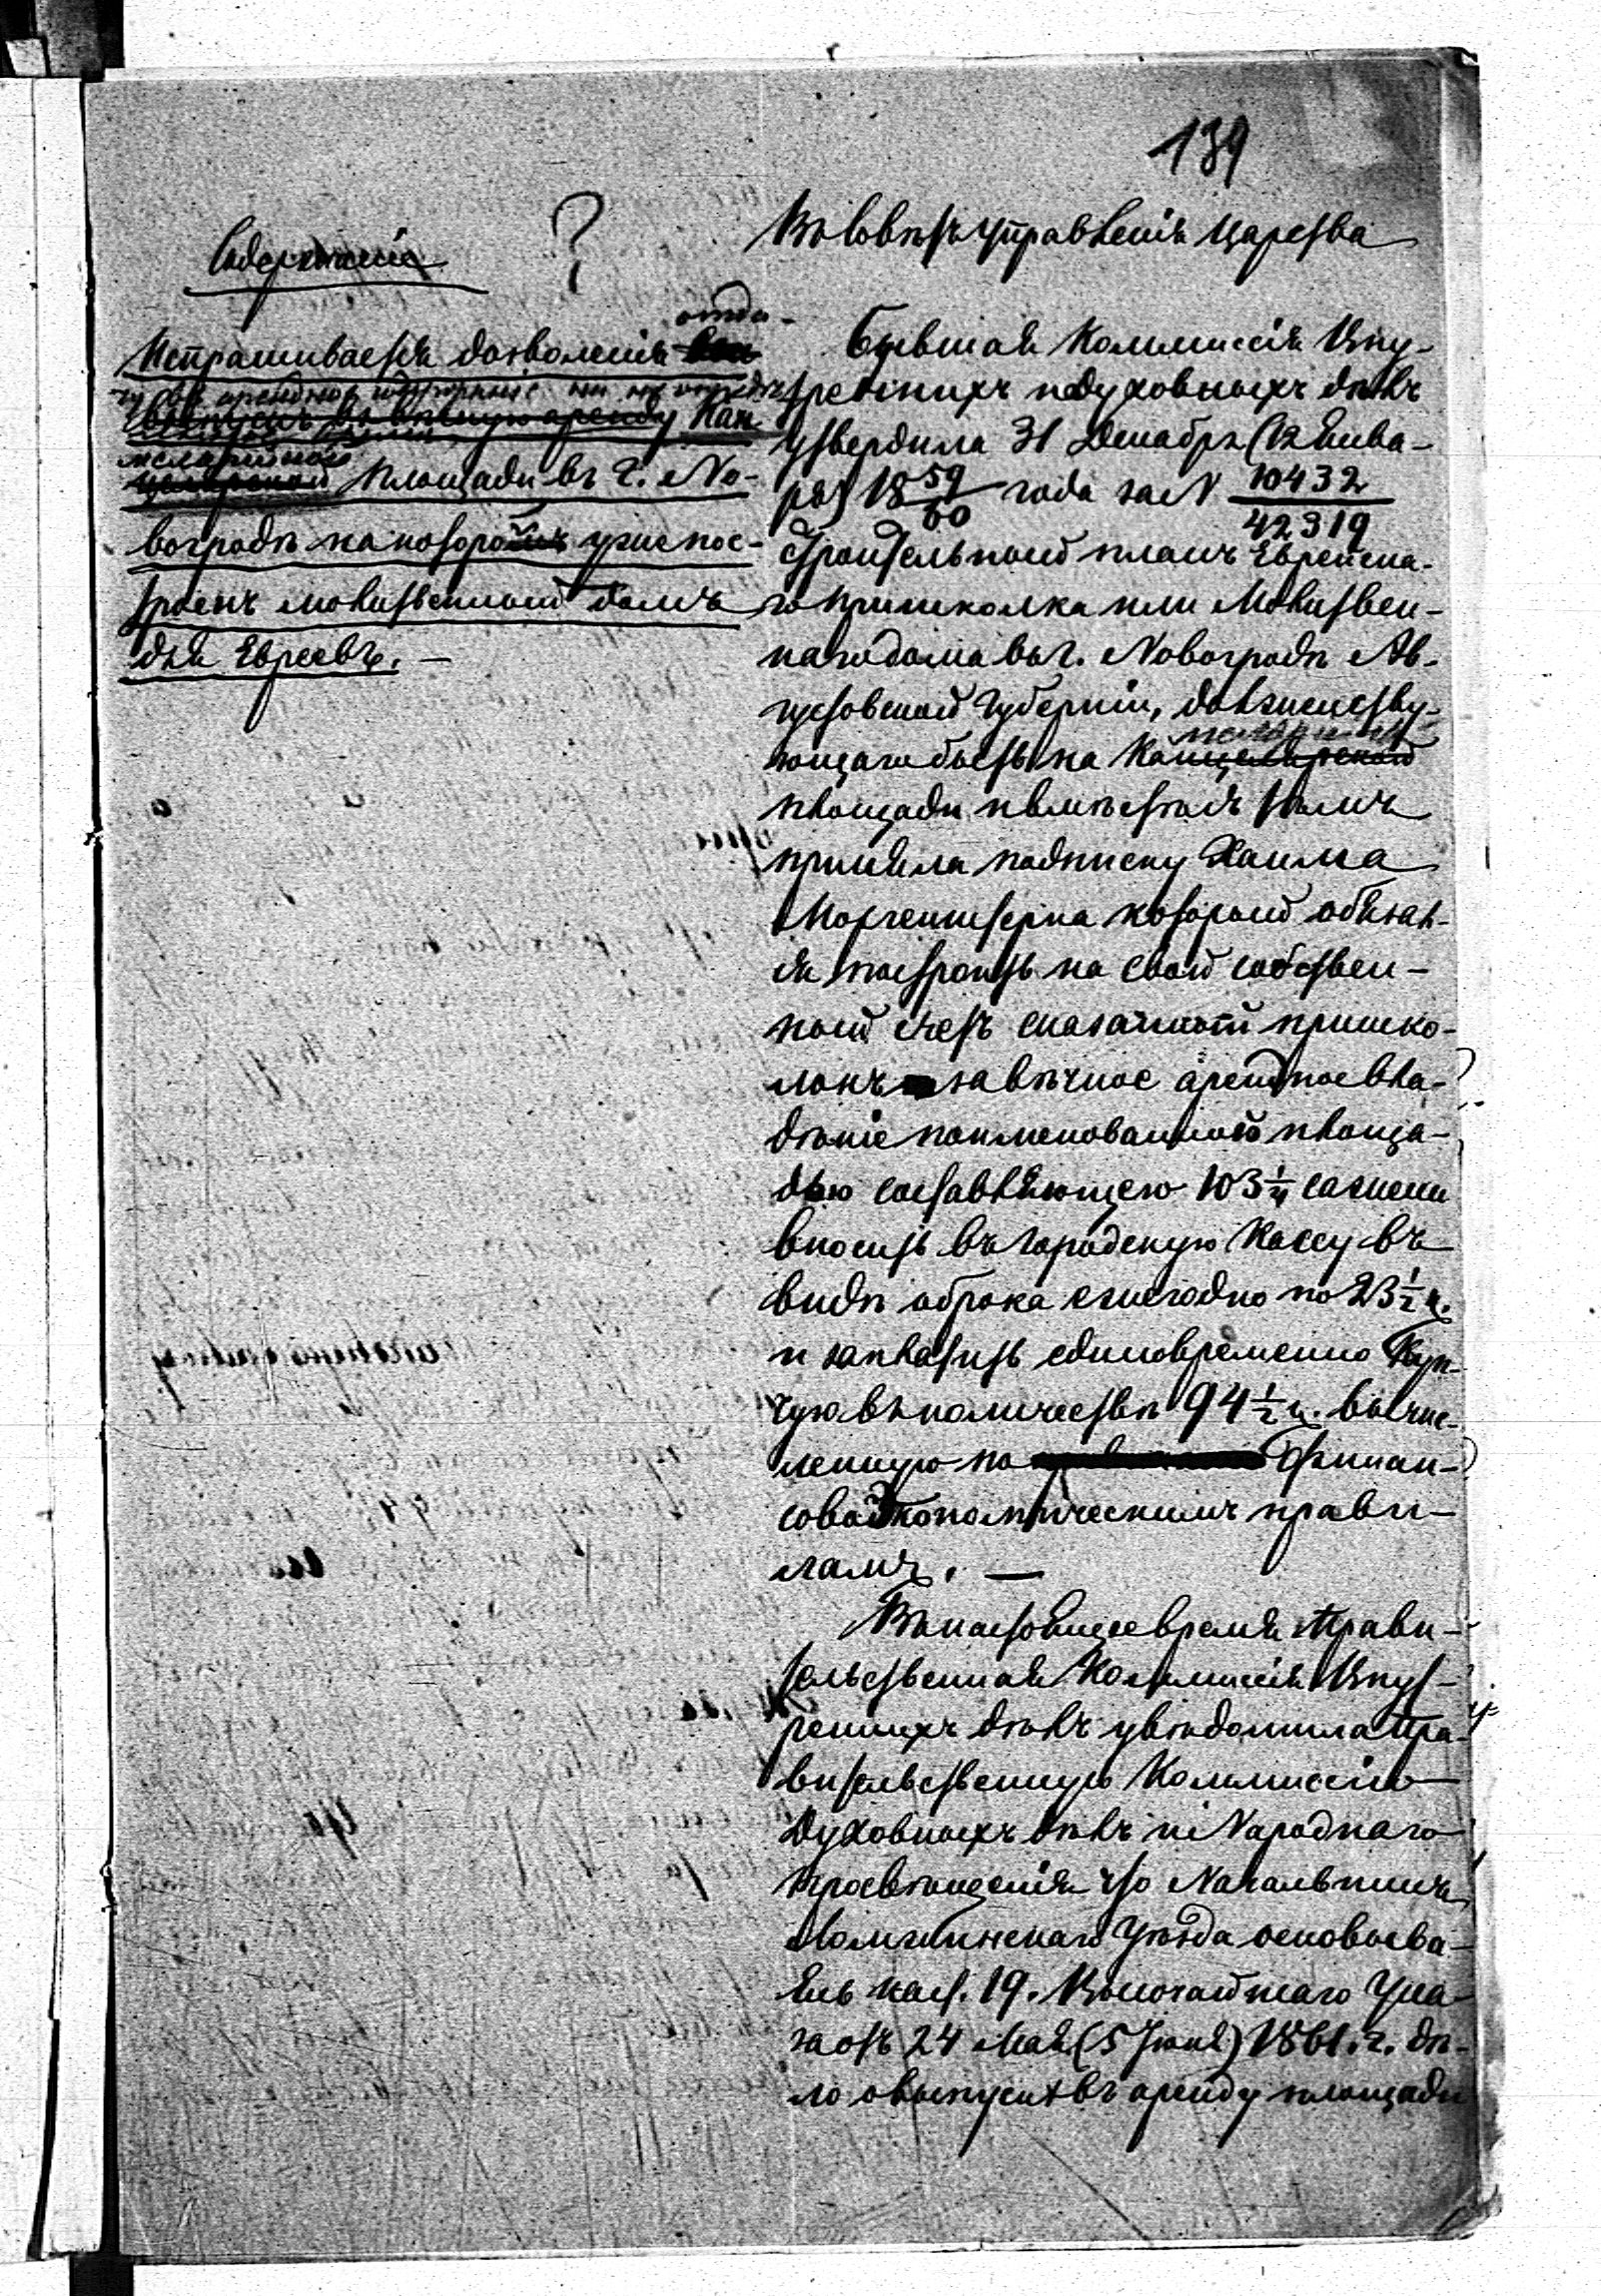 139
Въ Совѣтъ Управленія Царства
?
Содержаніе
отда-
Испрашивается дозволеніе
чу въ арендное содержаніе
въ вѣчную аренду Кан-
площади въ г. Но-
воградѣ на которой уже пос-
троенъ молитвенный домъ
для Евреевъ. —
Бывшая Коммиссія Вну-
треннихъ и Духовныхъ дѣлъ
утвердила 31 Декабря (12 Янва-
ря) 18 59/60 года за N 10432/42319
строительный планъ Еврейска-
го пришколка или Молитвен-
наго дома въ г. Новоградѣ Ав-
густовской Губерніи, долженству-
ющаго быть на Канцелярской
площади и вмѣстѣ съ тѣмъ
приняла подписку Хаима
Моргенштерна который обязал-
ся построить на свой собствен-
ный счетъ сказанный пришко-
локъ за вѣчное арендное вла-
дѣніе поименованной площа-
дью составляющею 103 1/4 сажени
вносить въ городскую Кассу въ
видѣ оброка ежегодно по 23 1/2 к.
и заплатить единовременно Куп-
чую въ количествѣ 94 1/2 к. вычис-
ленную по Финан-
сово Экономическимъ прави-
ламъ. —
Въ настоящее время Прави-
тельственная Коммиссія Внут-
реннихъ дѣлъ увѣдомила Пра-
вительственную Коммиссію
Духовныхъ дѣлъ и Народнаго
Просвѣщенія что Начальникъ
Ломжинскаго Уѣзда основыва-
ясь на ст. 19. Высочайшаго Ука-
за отъ 24 Мая (5 Іюня) 1861. г. дѣ-
ло о выпускѣ въ аренду площади